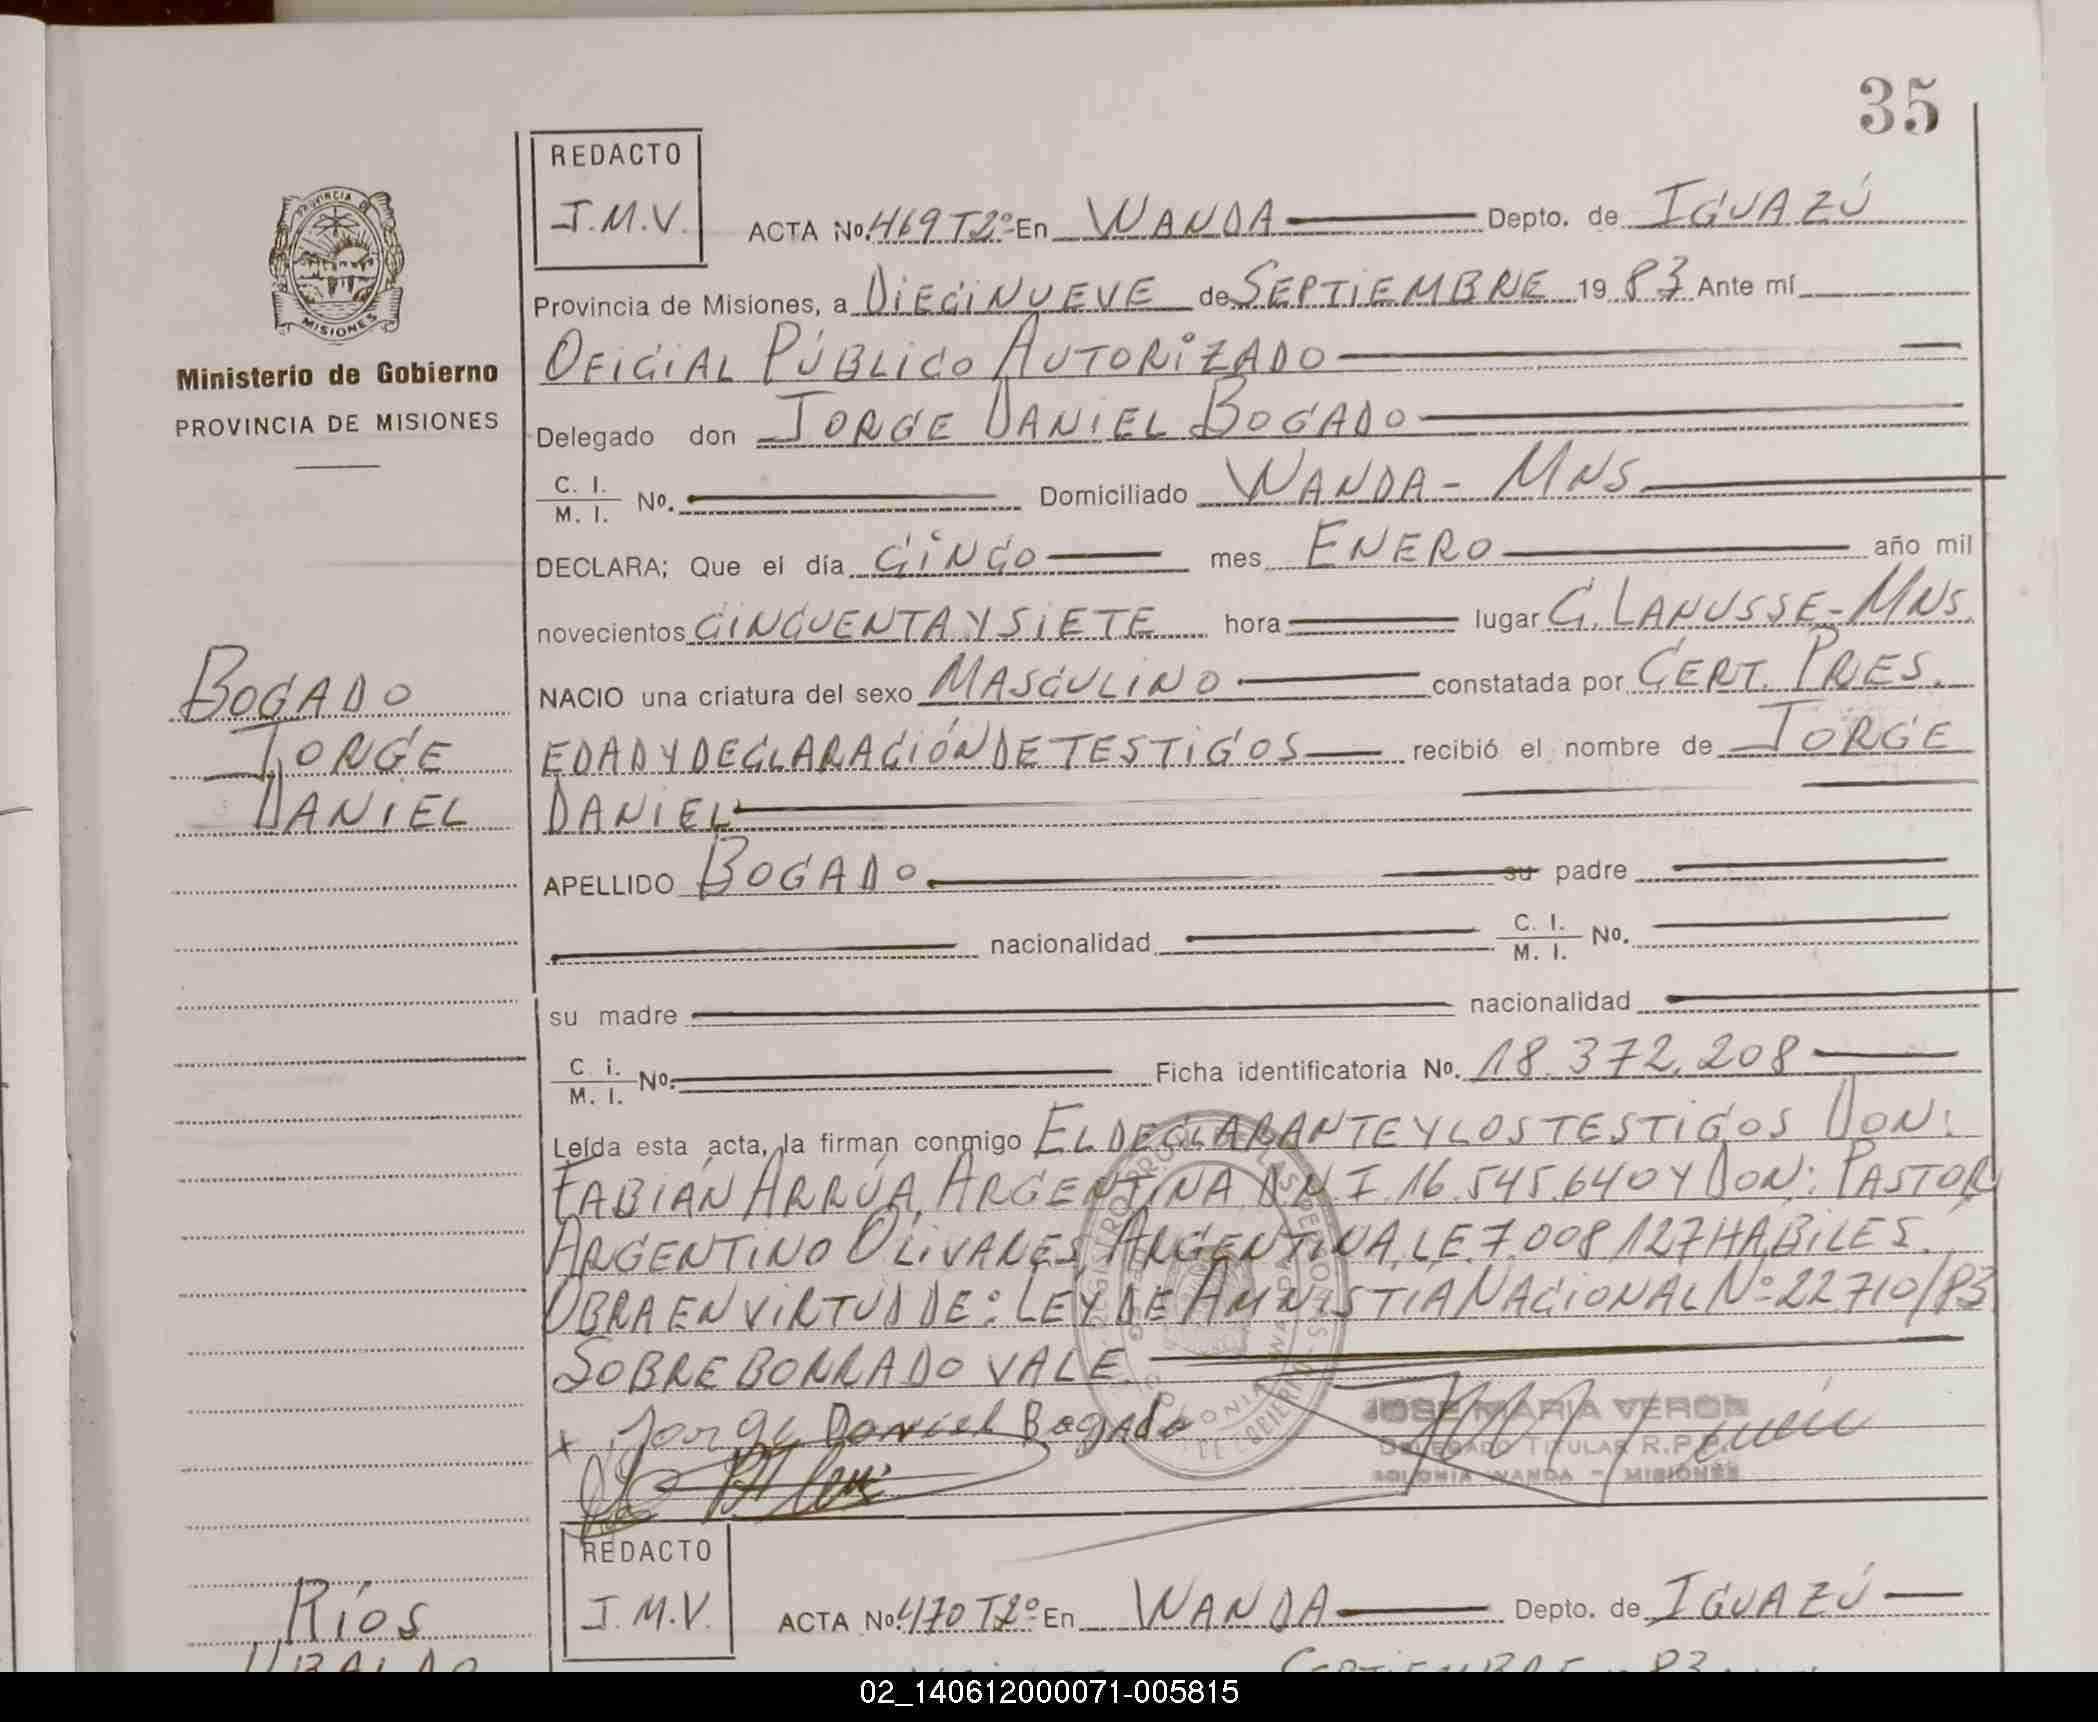 35
REDACTO
J.M.V.
ACTA No. 469 T2º En WANDA Depto. de IGUAZÚ
PROVINCIA DE
MISIONES
Ministerio de Gobierno
PROVINCIA DE MISIONES
Provincia de Misiones, a DIECINUEVE de SEPTIEMBRE 1983 Ante mí
OFICIAL PÚBLICO AUTORIZADO
Delegado don JORGE DANIEL BOGADO
C. I. / M. I. No. Domiciliado WANDA - MNS.
DECLARA; Que el día CINCO mes ENERO año mil
novecientos CINCUENTA Y SIETE hora lugar C. LANUSSE - MNS.
NACIO una criatura del sexo MASCULINO constatada por CERT. PRES.
EDAD Y DECLARACIÓN DE TESTIGOS recibió el nombre de JORGE
DANIEL
APELLIDO BOGADO su padre
nacionalidad C. I. / M. I. No.
su madre nacionalidad
C. i. / M. I. No. Ficha identificatoria No. 18.372.208
Leída esta acta, la firman conmigo EL DECLARANTE Y LOS TESTIGOS DON:
FABIÁN ARRÚA, ARGENTINA, D.N.I. 16.545.640 Y DON: PASTOR
ARGENTINO OLIVARES, ARGENTINA, L.E. 7.008.127 HÁBILES.
OBRA EN VIRTUD DE: LEY DE AMNISTIA NACIONAL Nº 22.710/83
SOBRE BORRADO VALE.
x Jorge Daniel Bogado
JOSE MARIA VERON
DELEGADO TITULAR R.P.P.
COLONIA WANDA - MISIONES
BOGADO
JORGE
DANIEL
REDACTO
J.M.V.
ACTA No. 470 T2º En WANDA Depto. de IGUAZÚ
RÍOS
UBALDO
SEPTIEMBRE 83
02_140612000071-005815